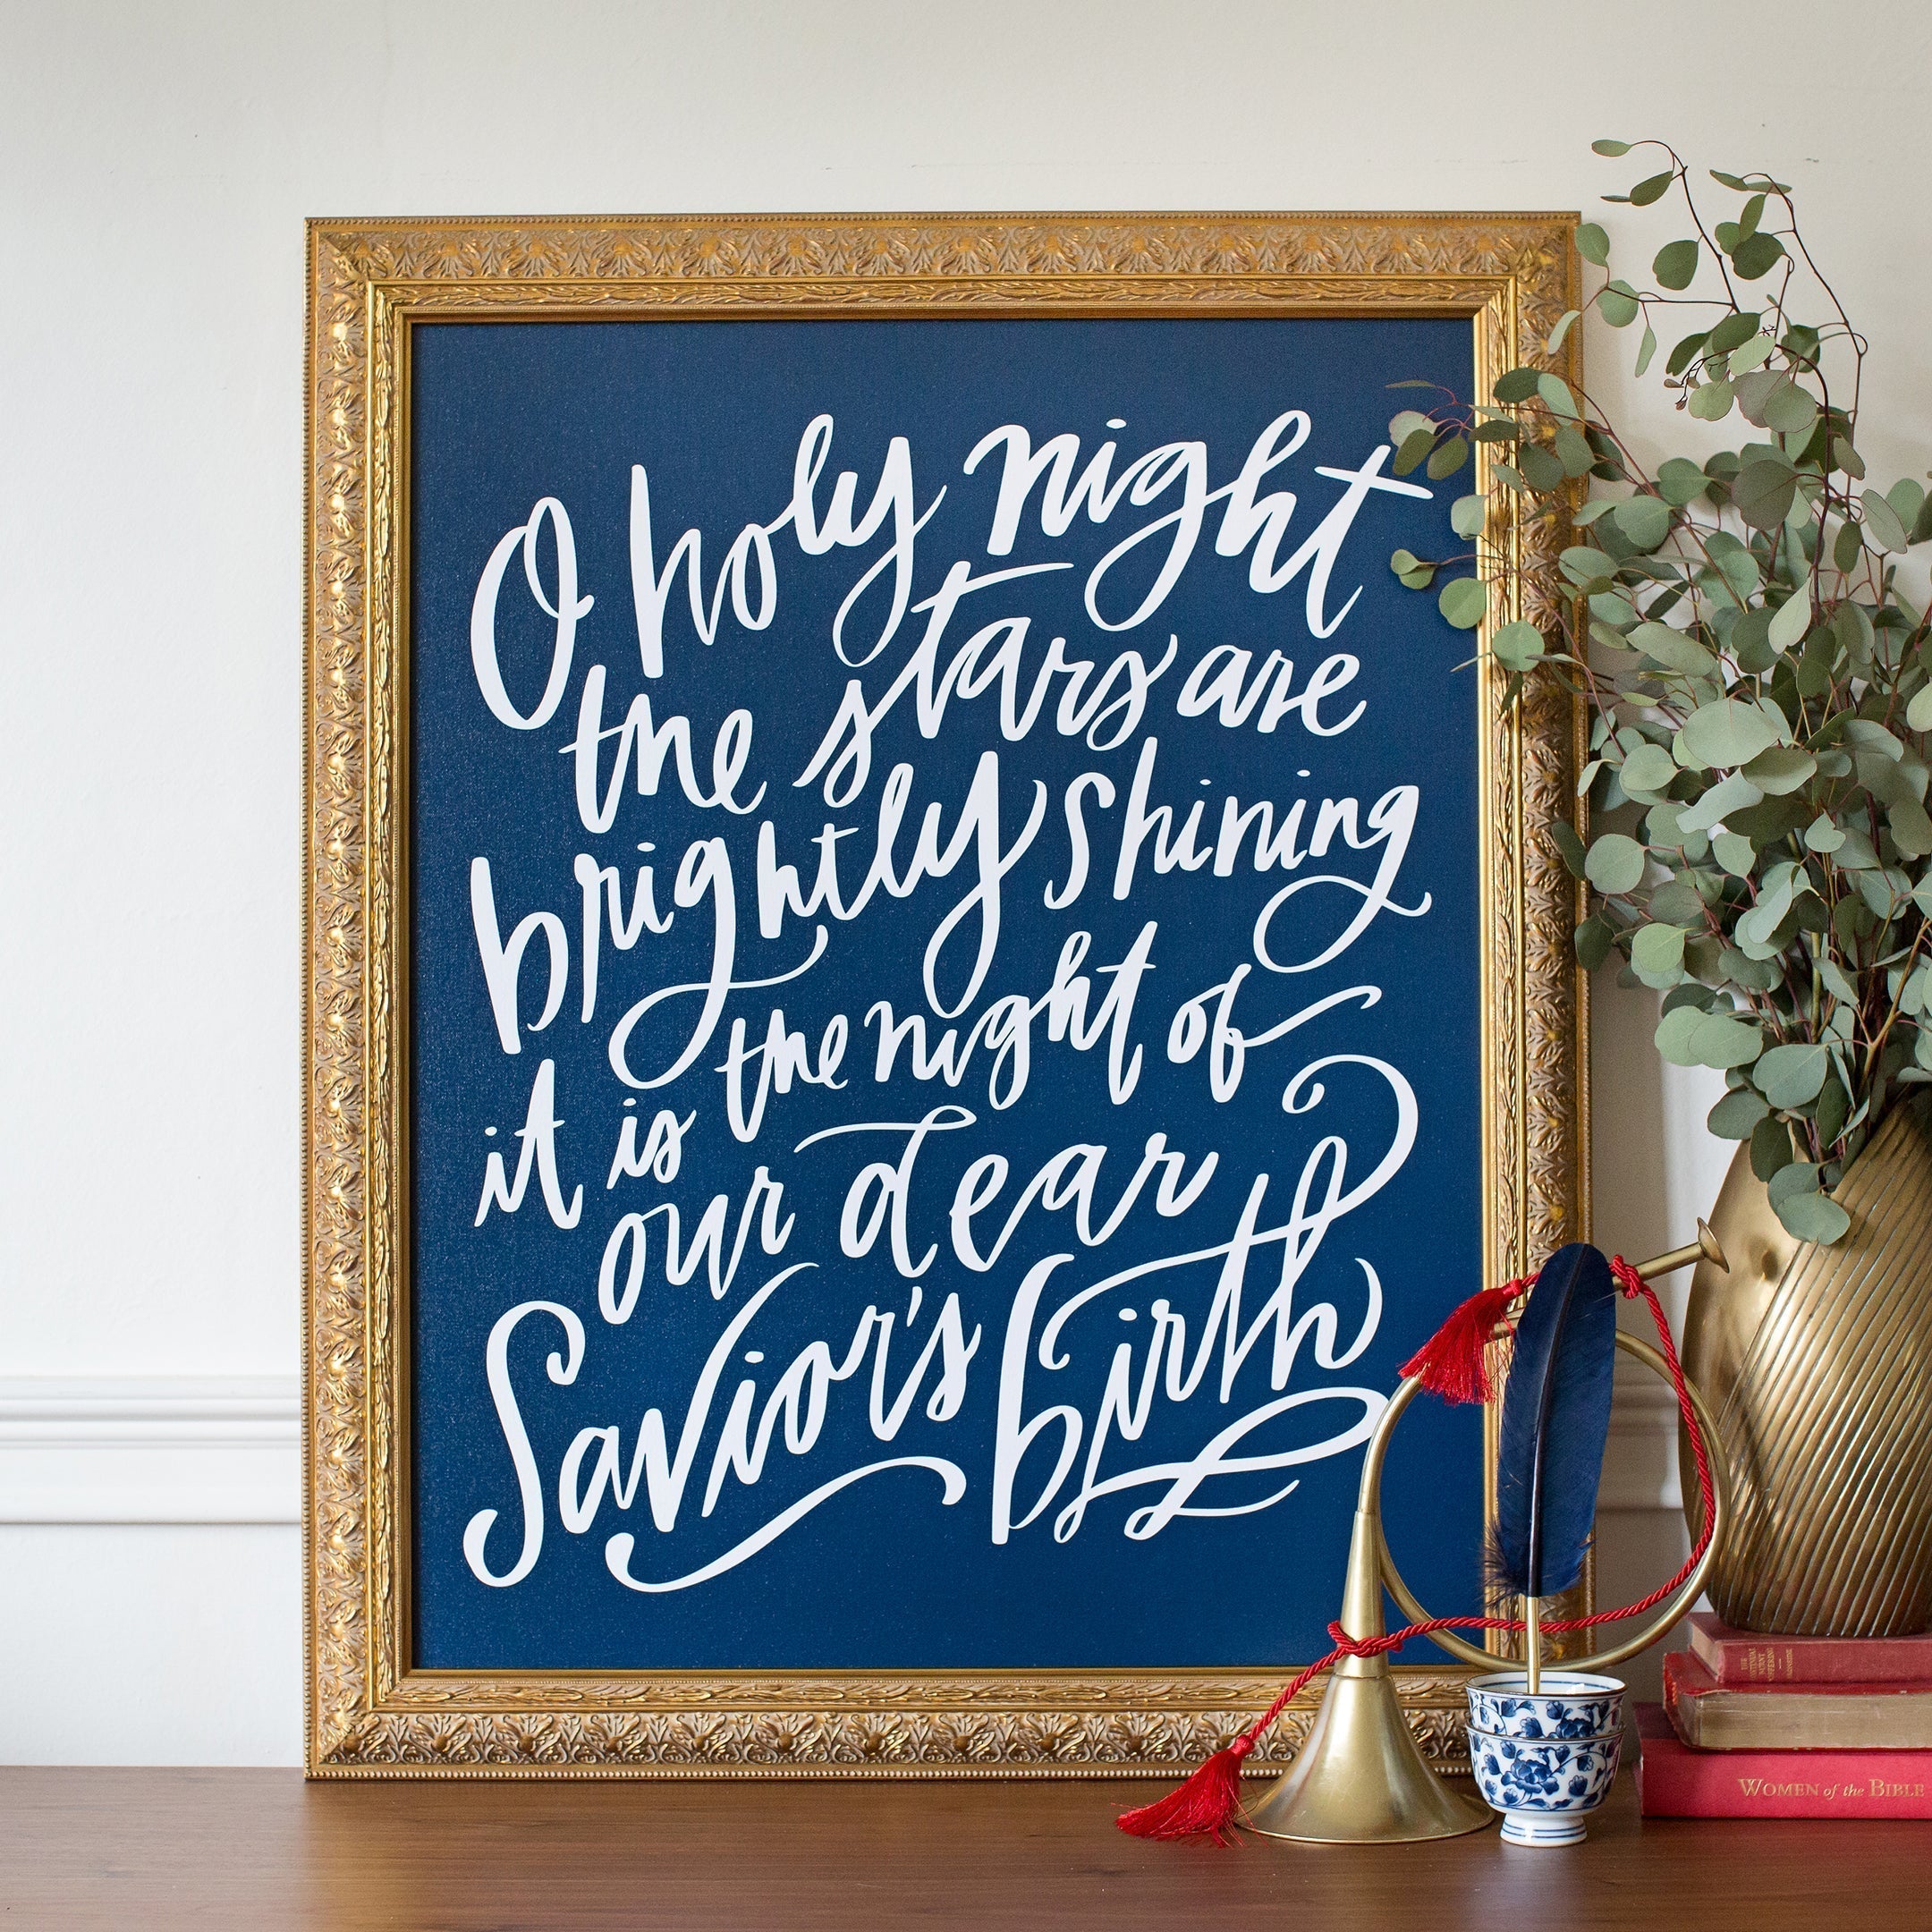 O holy night
the stars are
brightly shining
it is the night of
our dear
Savior's birth
WOMEN of the BIBLE